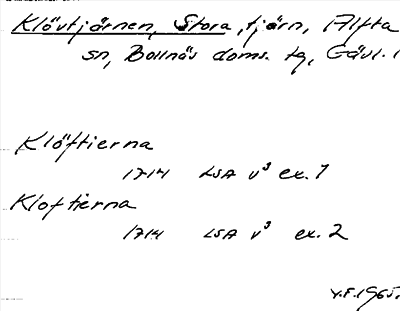 Klövtjärnen, Stora, tjärn, Alfta
sn, Bollnäs doms. tg, Gävl. l
Klöftierna
1714 LSA v³ ex. 1
Kloftierna
1714 LSA v³ ex. 2
Y.F. 1965.